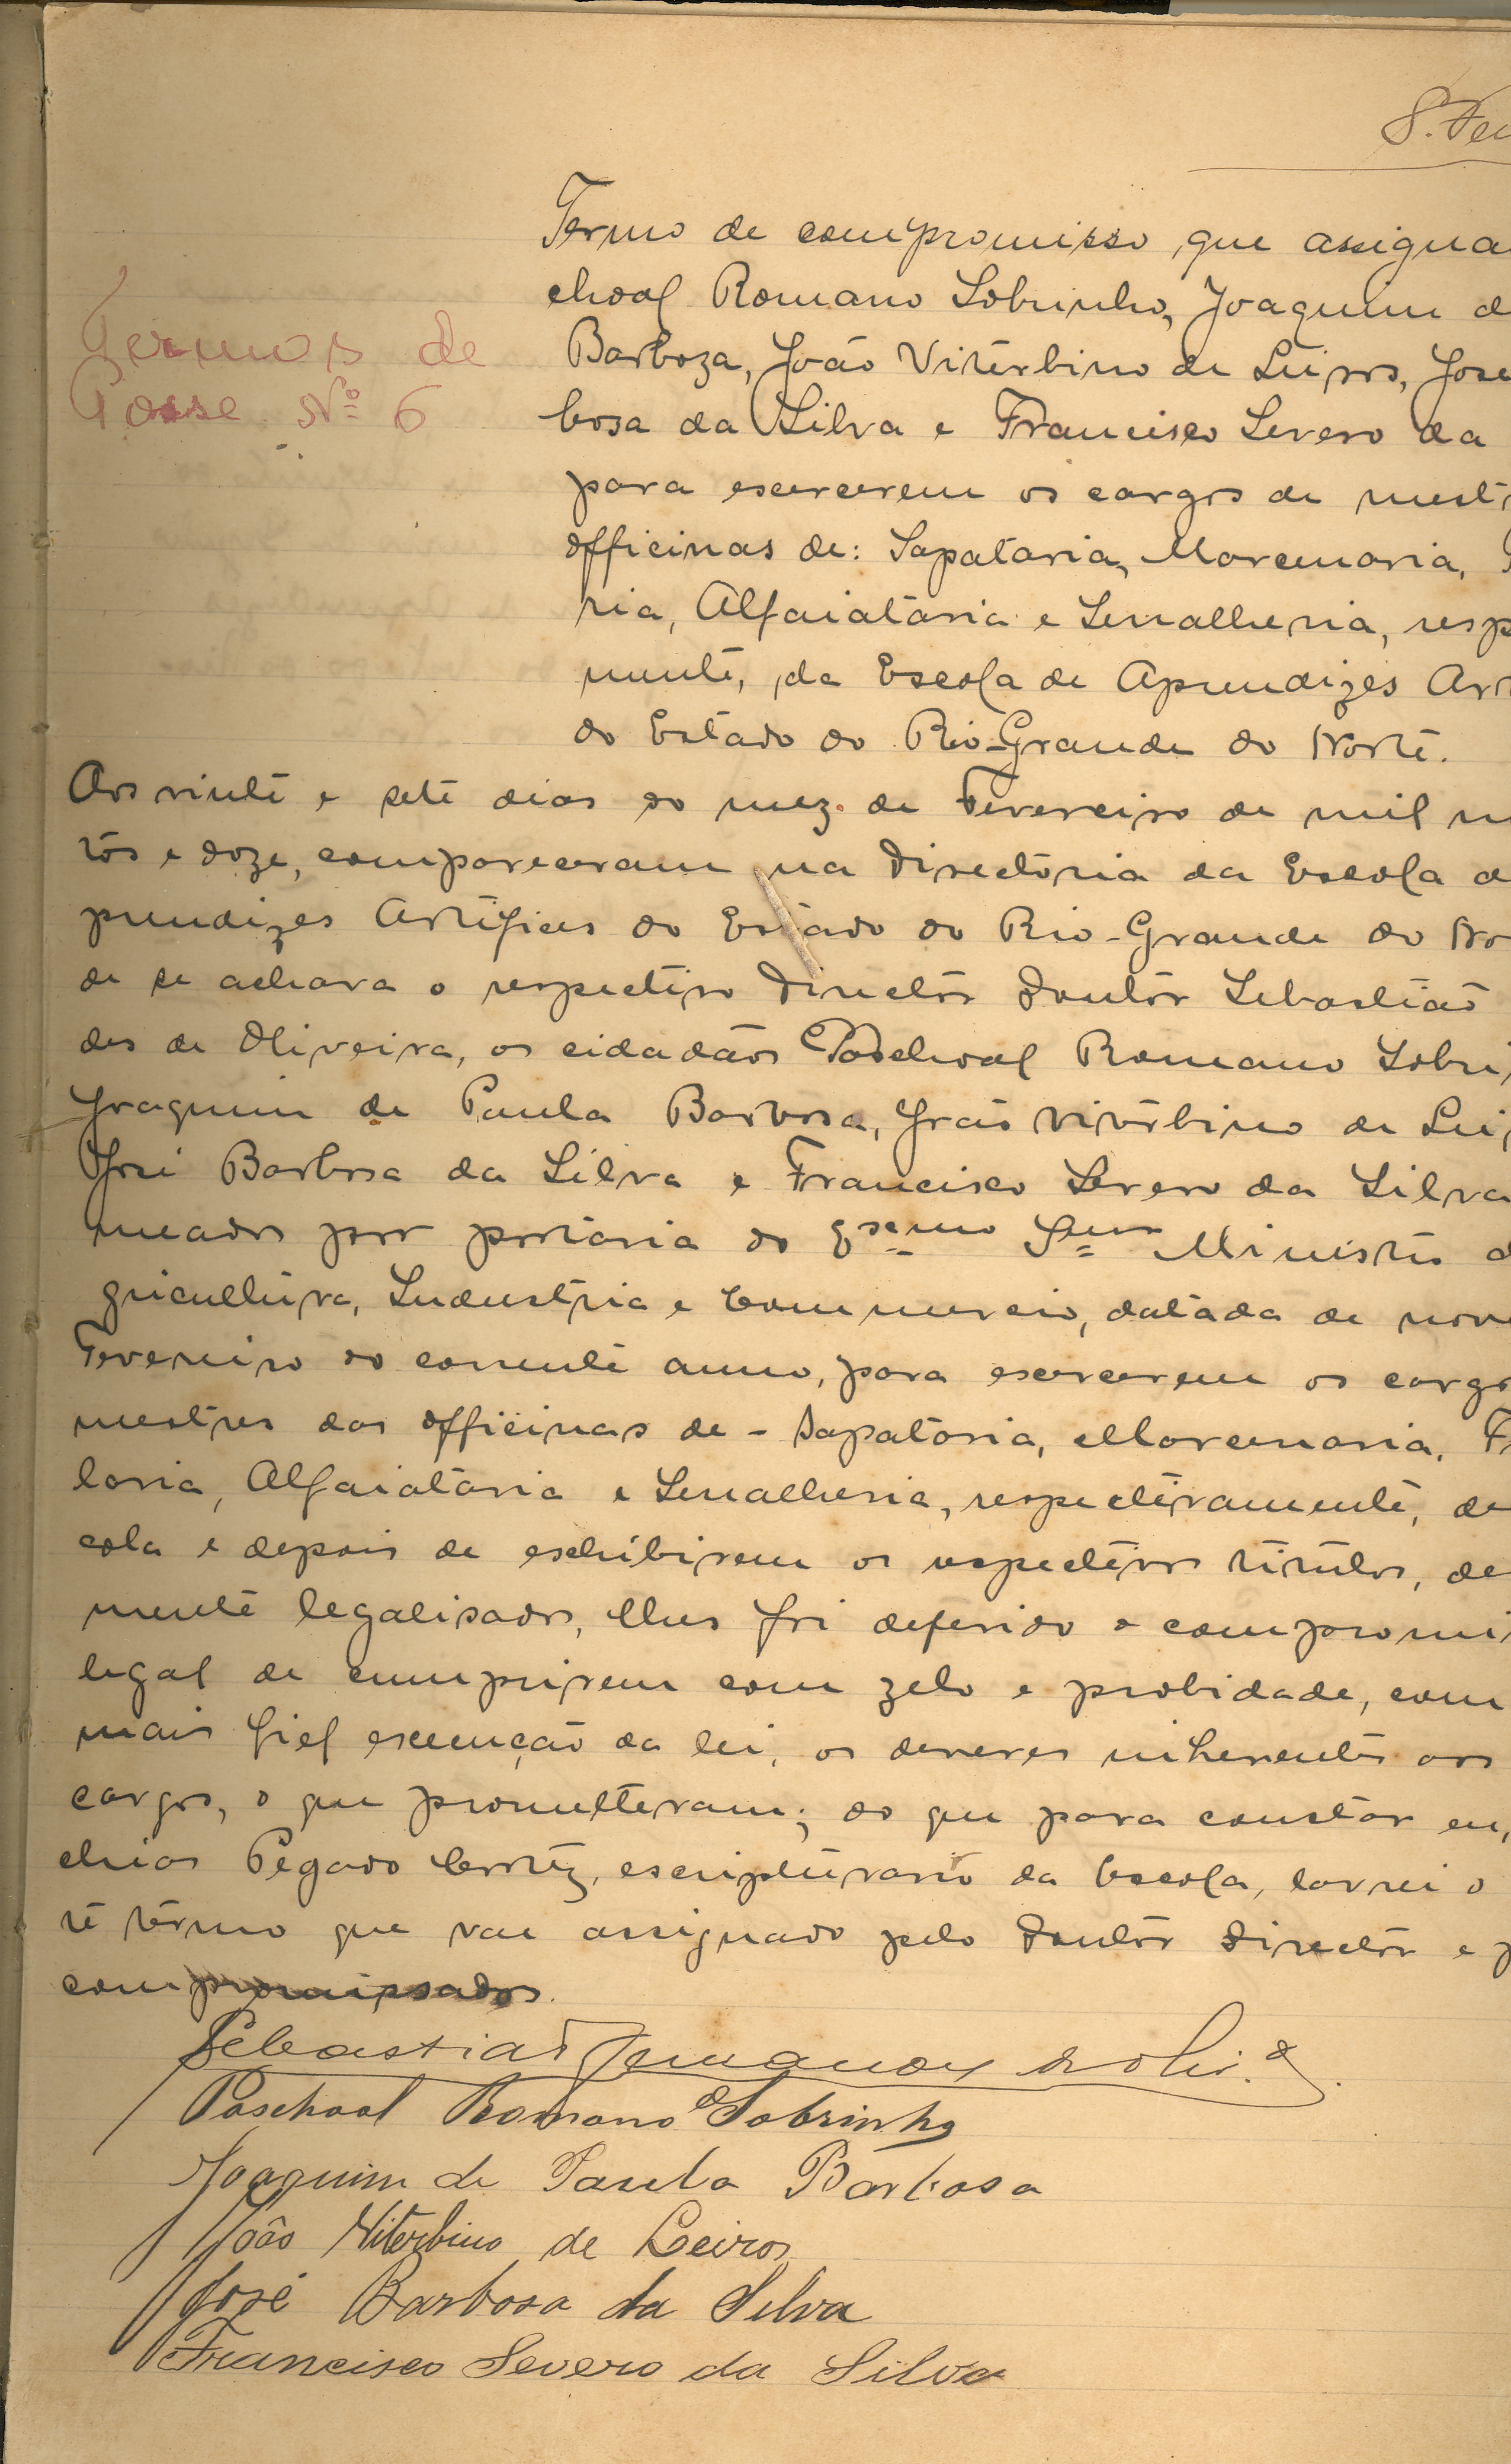 S. Fer
Termo de compromisso, que assigna
choal Romano Sobrinho, Joaquim d
Termos de
Posse Nº 6
Barboza, João Vitérbino de Leiros, José
bosa da Silva e Francisco Severo da
para excercerem os cargos de mest
officinas de: Sapataria, Marcenaria,
ria, Alfaiataria e Serralheria, resp
mente, da Escola de Aprendizes Art
do Estado do Rio-Grande do Norte.
Aos vinte e sete dias do mez de Fevereiro de mil n
tos e doze, compareceram na Directoria da Escola d
prendizes Artifices do Estado do Rio-Grande do No
de se achava o respectivo Director Doutor Sebastião
des de Oliveira, os cidadãos Paschoal Romano Sobri
Joaquim de Paula Barbosa, João Vitérbino de Lei
José Barbosa da Silva e Francisco Severo da Silva
meados por portaria do Exmo Snr Ministro d
gricultura, Industria e Commercio, datada de nove
Fevereiro do corrente anno, para excercerem os cargo
mestres das officinas de - Sapataria, Marcenaria, F
laria, Alfaiataria e Serralheria, respectivamente, de
cola e depois de exhibirem os respectivos titulos, de
mente legalisados, lhes foi deferido o compromi
legal de cumprirem com zelo e probidade, com
mais fiel execução da lei, os deveres inherentes aos
cargos, o que prometteram; do que para constar eu,
chias Pegado Cortez, escripturario da Escola, lavrei o
te têrmo que vae assignado pelo Doutor Director e p
compromissados.
Sebastião Fernandes de Oliv.ª
Paschoal Romano Sobrinho
Joaquim de Paula Barbosa
João Viterbino de Leiros
José Barbosa da Silva
Francisco Severo da Silva